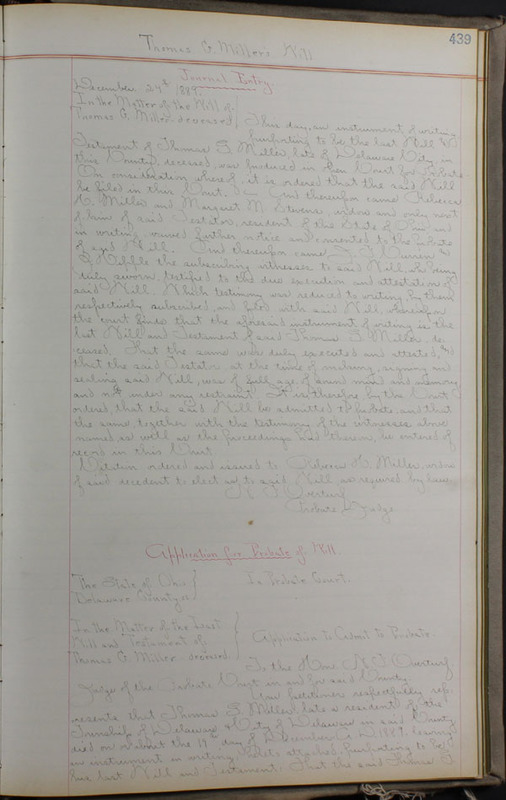 439
Thomas G. Millers Will
Journal Entry.
December 27th 1889.
In the Matter of the Will of
Thomas G. Miller deceased
This day, an instrument of writing
purporting to be the last Will and
Testament of Thomas G. Miller, late of Delaware City, in
this County, deceased, was produced in open Court for Probate
On consideration whereof, it is ordered that the said Will
be filed in this Court. And thereupon came Rebecca
H. Miller and Margaret M. Stevens, widow and only next
of kin of said Testator, resident of the State of Ohio and
in writing, waived further notice and consented to the probate
of said Will. And thereupon came
the subscribing witnesses to said Will, who being
duly sworn, testified to the due execution and attestation of
said Will. Which testimony was reduced to writing, by them
respectively subscribed, and filed with said Will, whereupon
the court finds that the aforesaid instrument of writing is the
last Will and Testament of said Thomas G. Miller, de-
ceased. That the same was duly executed and attested, and
that the said Testator at the time of making, signing and
sealing said Will, was of full age, of sound mind and memory
and not under any restraint. It is therefore by the Court
ordered, that the said Will be admitted to Probate, and that
the same, together with the testimony of the witnesses above
named as well as the proceedings had therein, be entered of
record in this Court.
Citation ordered and issued to Rebecca H. Miller, widow
of said decedent to elect as to said Will as required by law.
N. F. Overturf
Probate Judge
Application for Probate of Will.
The State of Ohio
Delaware County ss
In Probate Court.
In the Matter of the Last
Will and Testament of
Thomas G. Miller deceased
Application to Admit to Probate.
To the Hon. N. F. Overturf,
Judge of the Probate Court in and for said County.
Your petitioner respectfully rep-
resents that Thomas G. Miller, late a resident of the
Township of Delaware & City of Delaware in said County
died on or about the 19" day of December A.D. 1889, leaving
an instrument in writing, hereto attached, purporting to be
his last Will and Testament; That the said Thomas G.